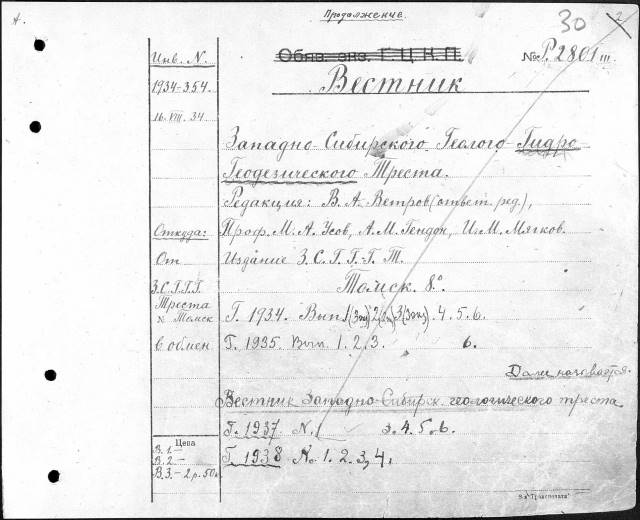 А.
Продолжение.
30
2
Инв. N.
Обяз. экз. Г.Ц.К.П.
№ P.2801 III.
1934-354
Вестник
16 VIII. 34
Западно-Сибирского Геолого-Гидро
Геодезического Треста.
Редакция: В. А. Ветров (ответ. ред.),
Откуда:
Проф. М. А. Усов, А. М. Гендон, И. М. Мягков.
От
Издание З. С. Г. Г. Г. Т.
З.С.Г.Г.Г.
Томск. 8º.
Треста
Томск
Г. 1934. Вып. 1(3экз) 2 3(3экз). 4. 5. 6.
в обмен
Г. 1935. Вып. 1. 2. 3. 6.
Дале называется.
Вестник Западно-Сибирск. геологического треста
Г. 1937 N. 1 3. 4. 5. 6.
Цена
В. 1 —
В. 2 —
Г. 1938 №. 1. 2. 3, 4.
В. 3. — 2 р. 50 к.